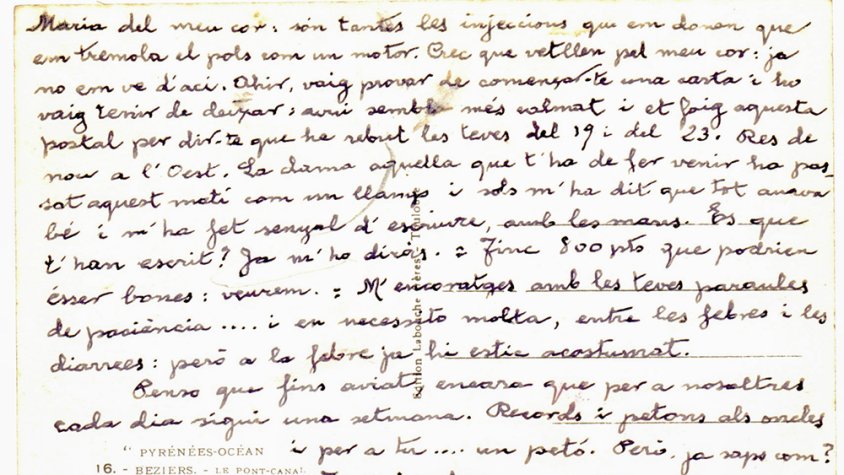 Maria del meu cor: són tantes les injeccions que em donen que
em tremola el pols com un motor. Crec que vetllen pel meu cor: ja
no em ve d'aci. Ahir, vaig provar de començar-te una carta i ho
vaig tenir de deixar: avui sembla més calmat i et faig aquesta
postal per dir-te que he rebut les teves del 19 i del 23. Res de
nou a l'Oest. La dama aquella que t'ha de fer venir ha pas-
sat aquest matí com un llamp i sols m'ha dit que tot anava
bé i m'ha fet senyal d'escriure, amb les mans. Es que
t'han escrit? Ja m'ho diràs. = Tinc 800 pts que podrien
ésser bones: veurem. = M'encoratges amb les teves paraules
de paciència .... i en necessito molta, entre les febres i les
diarrees: però a la febre ja hi estic acostumat.
Penso que fins aviat, encara que per a nosaltres
cada dia sigui una setmana. Records i petons als oncles
i per a tu .... un petó. Però, ja saps com?
Edition Labouche Frères, Toulouse
" PYRÉNÉES-OCÉAN
16. - BEZIERS. - LE PONT-CANAL